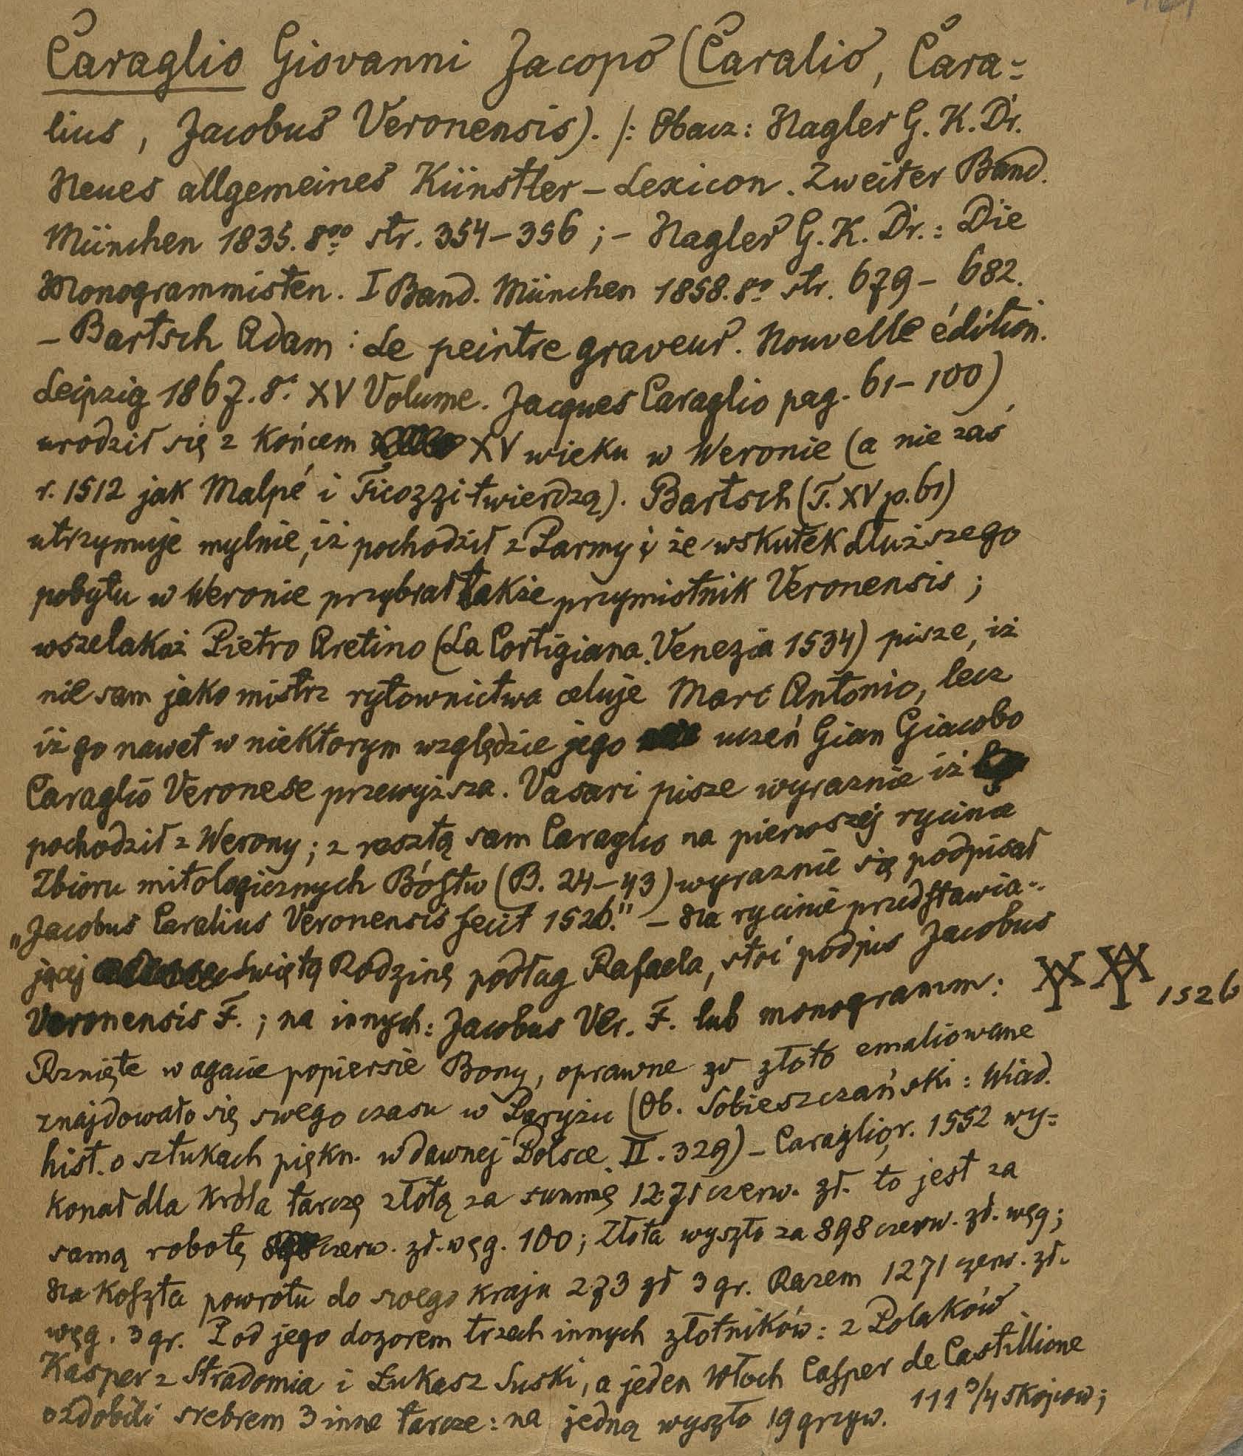 Caraglio Giovanni Jacopo (Caralio, Cara=
lius, Jacobus Veronensis). /: Obacz: Nagler G. K. Dr.
Neues allgemeines Künstler-Lexicon. Zweiter Band.
München 1835. 8vo str. 354-356; - Nagler G. K. Dr.: Die
Monogrammisten. I Band. München 1858. 8o str. 679-682.
- Bartsch Adam: Le peintre graveur. Nouvelle édition.
Leipzig 1867. 8. XV Volume. Jacques Caraglio pag. 61-100),
urodził się z końcem XV wieku w Weronie (a nie zaś
r. 1512 jak Malpé i Ticozzi twierdzą). Bartsch (T. XV p. 61)
utrzymuje mylnie, iż pochodził z Parmy i że wskutek dłuższego
pobytu w Weronie przybrał także przymiotnik Veronensis;
wszelakoż Pietro Aretino (La Cortigiana. Venezia 1534) pisze, iż
nie sam jako mistrz rytownictwa celuje Marc Antonio, lecz
iż go nawet w niektorym względzie jego uczeń Gian Giacobo
Caraglio Veronese przewyższa. Vasari pisze wyraznie iż
pochodził z Werony; z resztą sam Caraglio na pierwszej rycinie
Zbioru mitologicznych Bóstw (B. 24-43) wyraznie się podpisał
„Jacobus Caralius Veronensis fecit 1526." - Na rycinie przedstawia-
jącej Świętą Rodzinę podług Rafaela, stoi podpis Jacobus
Veronensis F.; na innych: Jacobus Ver. F. lub monogramm: 1526
Rznięte w agacie popiersie Bony, oprawne w złoto emaliowane
znajdowało się swego czasu w Paryżu (Ob. Sobieszczański: Wiad.
hist. o sztukach piękn. w dawnej Polsce. II. 329) - Caraglio, r. 1552 wy=
konał dla Króla tarczę złotą za summę 1271 czerw. zł. to jest za
samą robotę czerw. zł. węg. 100; Złota wyszło za 898 czerw. zł. węg;
Na koszta powrotu do swego kraju 273 zł 3 gr. Razem 1271 czerw. zł.
węg. 3 gr. Pod jego dozorem trzech innych złotników: z Polaków
Kasper z Stradomia i Łukasz Suski, a jeden Włoch Casper de Castillione
ozdobili srebrem 3 inne tarcze: na jedną wyszło 19 grzyw. 11 1 3/4 skojcow;